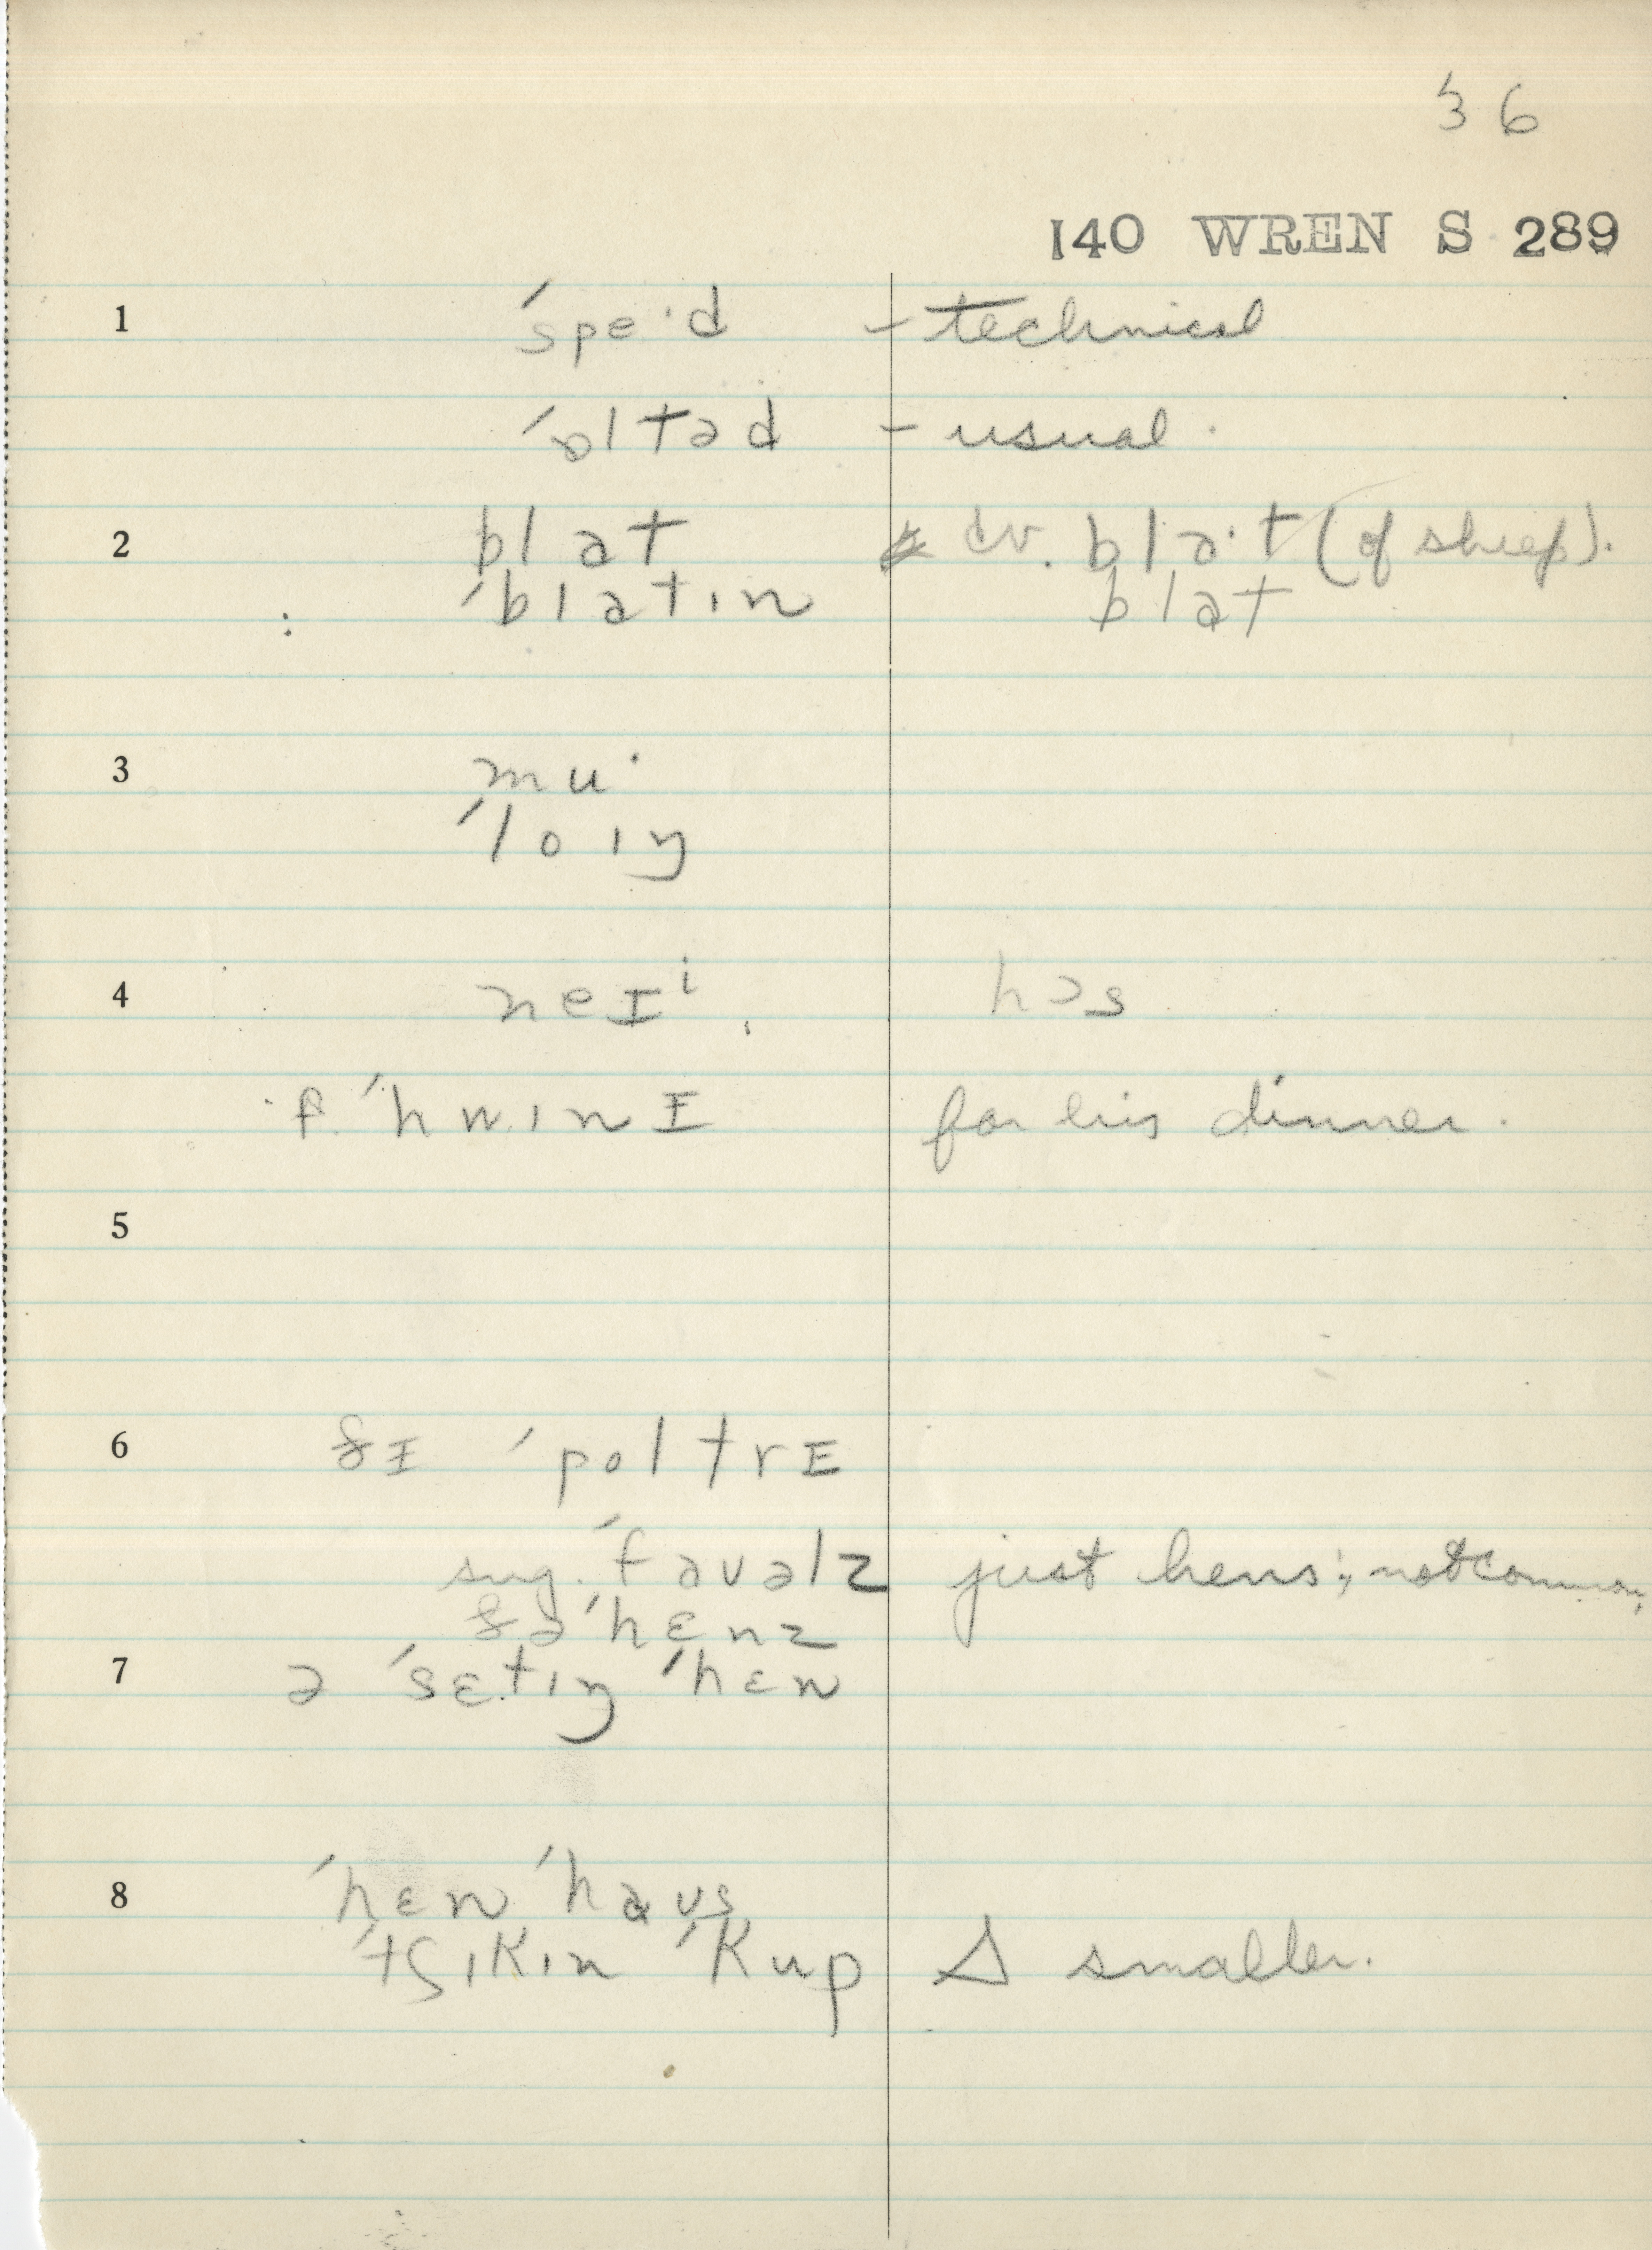 36
140 WREN S 289
1 ˈspe·d - technical
ˈɒltəd - usual.
2 blat cv. bla·t (of sheep).
ˈblatɪn blat
3 mu·
ˈloɪŋ
4 neIⁱ hɔs
f ˈhwɪnI for his dinner.
5
6 ðI ˈpoltrI
sug. ˈfaʊəlz just hens; not common,
ðə ˈhɛnz
7 ə ˈsɛtɪŋ ˈhɛn
8 ˈhɛn ˈhaʊs
ˈtʃɪkɪn ˈkup Δ smaller.